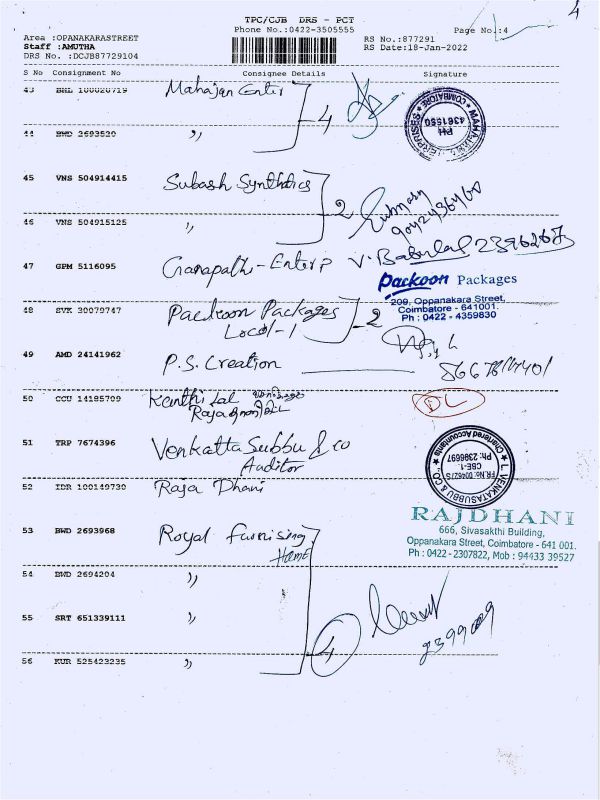 4
TPC/CJB DRS - PCT
Phone No.:0422-3505555
Page No.:4
Area :OPANAKARASTREET
Staff :AMUTHA
DRS No. :DCJB87729104
RS No.:877291
RS Date:18-Jan-2022
S No Consignment No Consignee Details Signature
43 BHL 100020719 Mahajan Enter 4
MAHAJAN ENTERPRISES * COIMBATORE * PH 4361550
44 BWD 2693520 "
45 VNS 504914415 Subash Synthatics 2
9042436460
46 VNS 504915125 "
47 GPM 5116095 Ganapathi-Enterp V. Babulal 2396267
Packoon Packages
209, Oppanakara Street,
Coimbatore - 641001.
Ph : 0422 - 4359830
48 SVK 30079747 Packoon Packages 2
Local-1
49 AMD 24141962 P.S. Creation
50 CCU 14185709 Kanthi Lal
Raja
DL
51 TRP 7674396 Venkatta Subbu & co
Auditor
* L. VENKATASUBBU & CO * Chartered Accountants FR.No.004627S CBE-1. Ph: 2396697
52 IDR 100149730 Raja Dhani
RAJDHANI
666, Sivasakthi Building,
Oppanakara Street, Coimbatore - 641 001.
Ph : 0422 - 2307822, Mob : 94433 39527
53 BWD 2693968 Royal Furnising
Home
54 BWD 2694204 "
55 SRT 651339111 " 4
2399009
56 KUR 525423235 "